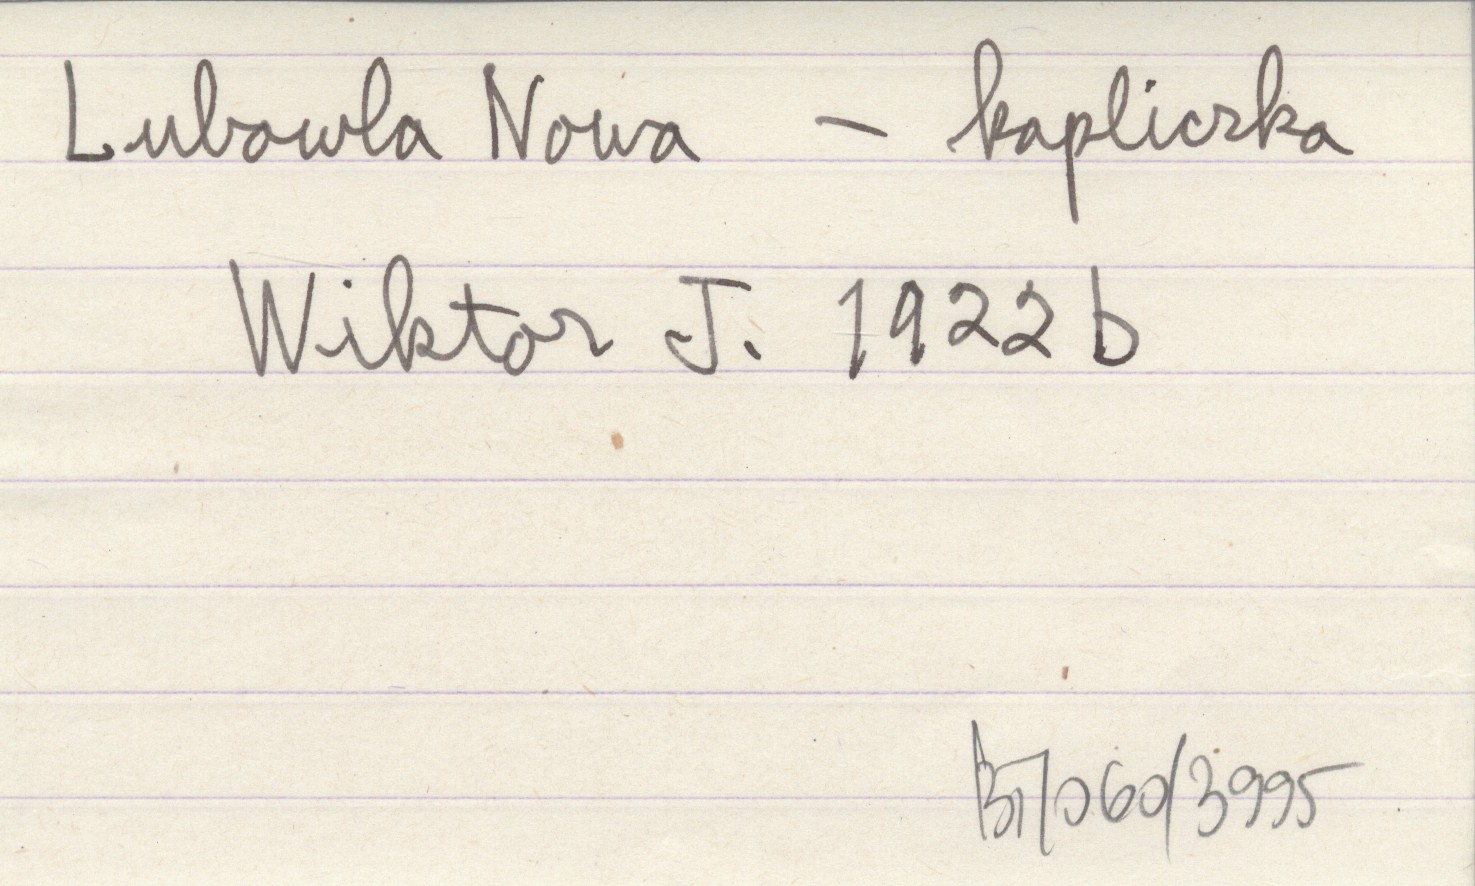 Lubowla Nowa – kapliczka
Wiktor J. 1922 b
/060/3995